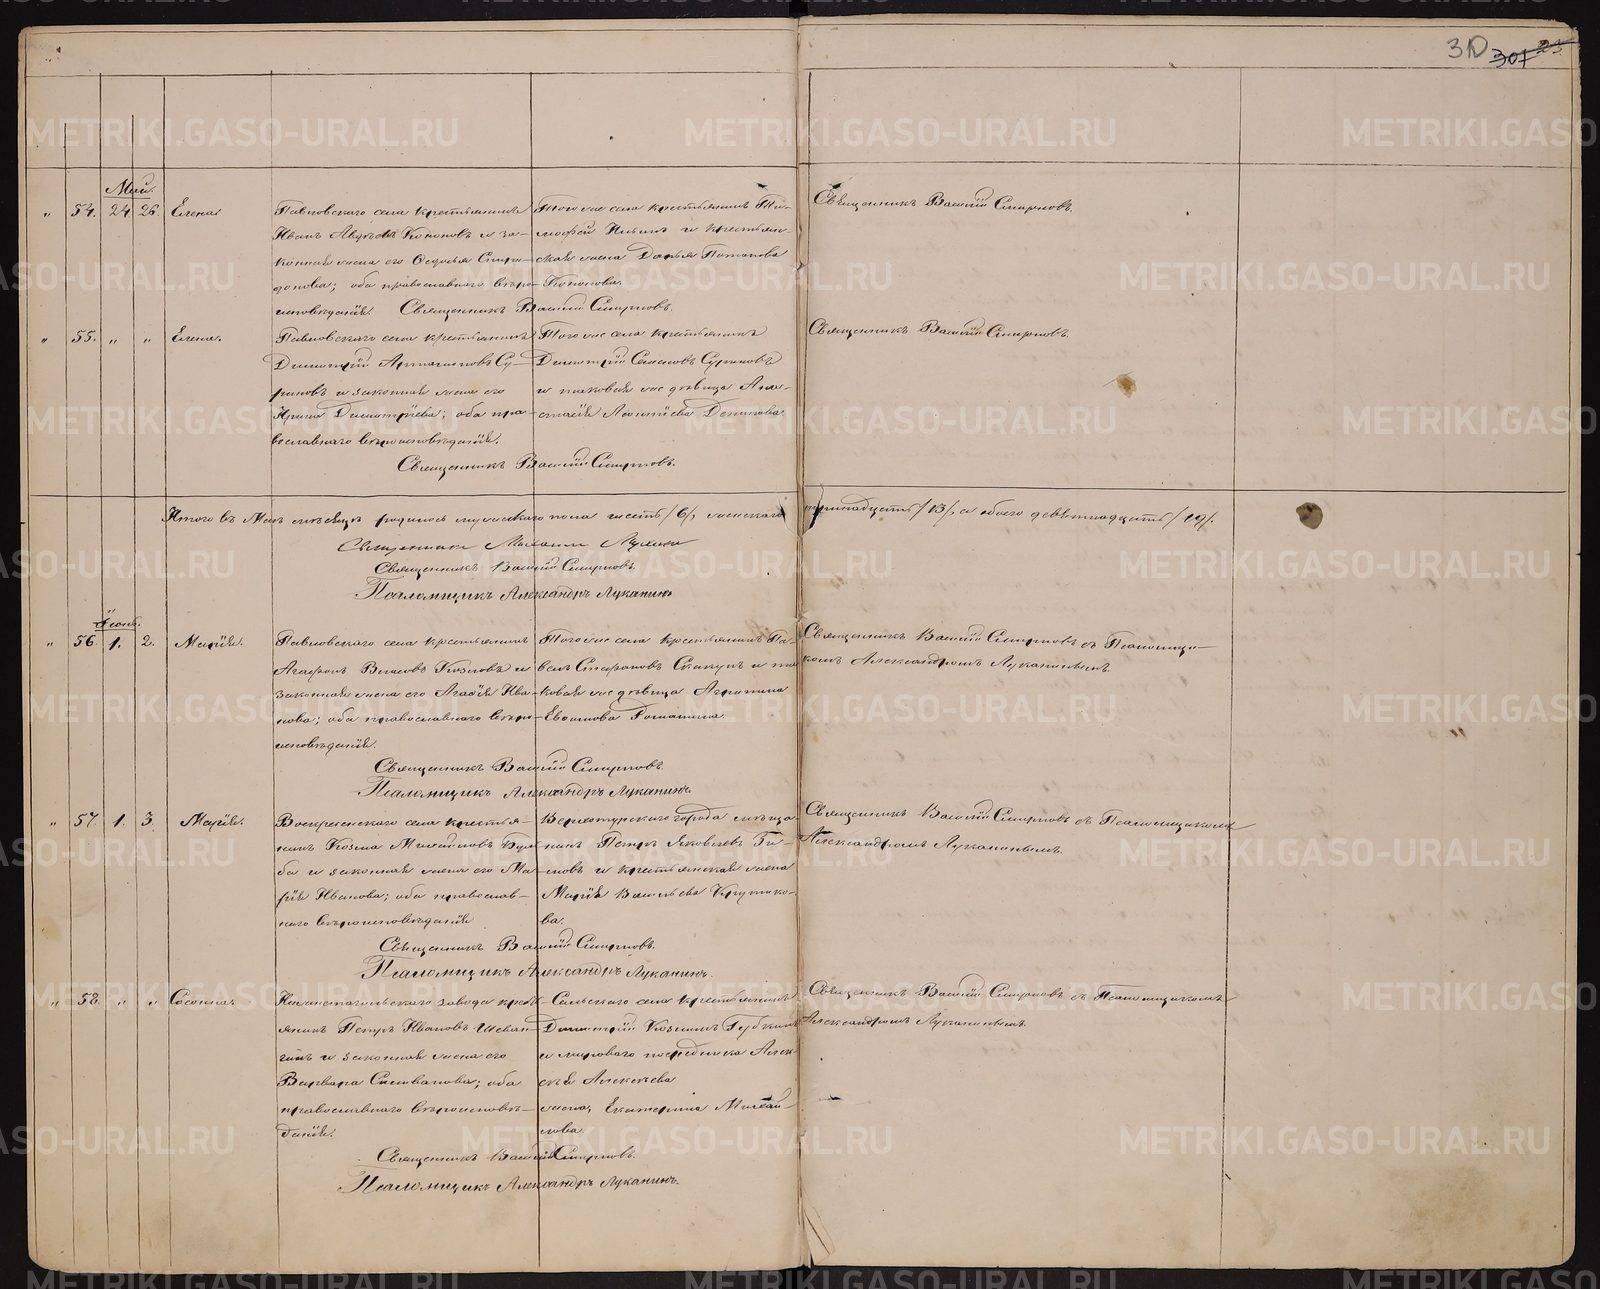 310 307 23
Май.
" 54. 24 26. Елена.
Павловскаго села крестьянинъ
Иванъ Кононовъ и за-
конная жена его Ѳедосья Спири-
донова; оба православнаго вѣро-
исповѣданія. Священникъ Василій Смирновъ.
Того же села крестьянинъ Ти-
моѳей Ильинъ и крестьян-
ская жена Дарья Потапова
Кононова.
Священникъ Василій Смирновъ.
" 55. " " Елена.
Павловскаго села крестьянинъ
Димитрій Артамоновъ Су-
риновъ и законная жена его
Ирина Димитріева; оба пра-
вославнаго вѣроисповѣданія.
Священникъ Василій Смирновъ.
Того же села крестьянинъ
Димитрій Семеновъ Суриновъ
и таковая же дѣвица Ана-
стасія Леонтіева
Священникъ Василій Смирновъ.
Итого въ Маѣ мѣсяцѣ родилось мужескаго пола шесть /6/, женскаго тринадцать /13/, а обоего девятнадцать /19/.
Священникъ Михаилъ
Священникъ Василій Смирновъ.
Псаломщикъ Александръ Луканинъ.
Іюнь.
" 56. 1. 2. Марія.
Павловскаго села крестьянинъ
Агафонъ Власовъ Козловъ и
законная жена его Агафія Ива-
нова; оба православнаго вѣро-
исповѣданія.
Священникъ Василій Смирновъ.
Псаломщикъ Александръ Луканинъ.
Того же села крестьянинъ Па-
велъ Стефановъ Скакунъ и та-
ковая же дѣвица Агрипина
Евѳимова
Священникъ Василій Смирновъ съ Псаломщи-
комъ Александромъ Луканинымъ.
" 57. 1. 3. Марія.
Воскресенскаго села крестья-
нинъ Козма Михайловъ
и законная жена его Ма-
рія Иванова; оба православ-
наго вѣроисповѣданія
Священникъ Василій Смирновъ.
Псаломщикъ Александръ Луканинъ.
Верхотурскаго города мѣща-
нинъ Петръ Яковлевъ Ти-
ховъ и крестьянская жена
Марія Васильева Крутико-
ва.
Священникъ Василій Смирновъ съ Псаломщикомъ
Александромъ Луканинымъ.
" 58. " " Сосанна.
Нижнетагильскаго завода крест-
янинъ Петръ Ивановъ Шеван-
гинъ и законная жена его
Варвара Силиванова; оба
православнаго вѣроисповѣ-
данія.
Священникъ Василій Смирновъ.
Псаломщикъ Александръ Луканинъ.
Сальскаго села крестьянинъ
Димитрій Козминъ Губкинъ
и мироваго посредника Алек-
сѣя Алексѣева
жена, Екатерина Михай-
лова.
Священникъ Василій Смирновъ съ Псаломщикомъ
Александромъ Луканинымъ.
METRIKI.GASO-URAL.RU